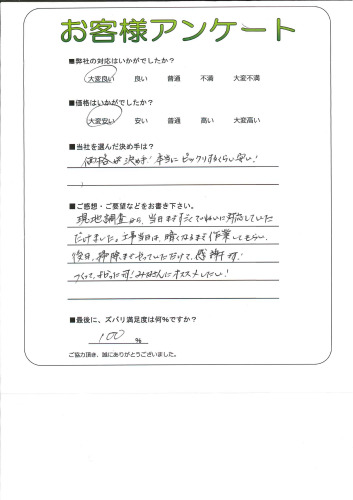 お客様アンケート
■弊社の対応はいかがでしたか?
大変良い 良い 普通 不満 大変不満
■価格はいかがでしたか?
大変安い 安い 普通 高い 大変高い
■当社を選んだ決め手は?
価格が決め手!本当にビックリするくらい安い!
■ご感想・ご要望などをお書き下さい。
現地調査から、当日まですごくていねいに対応していた
だけました。工事当日は、暗くなるまで作業してもらい、
後日、掃除までやっていただけて、感謝です!
つくってよかったです!みなさんにオススメしたい!
■最後に、ズバリ満足度は何%ですか?
100 %
ご協力頂き、誠にありがとうございました。